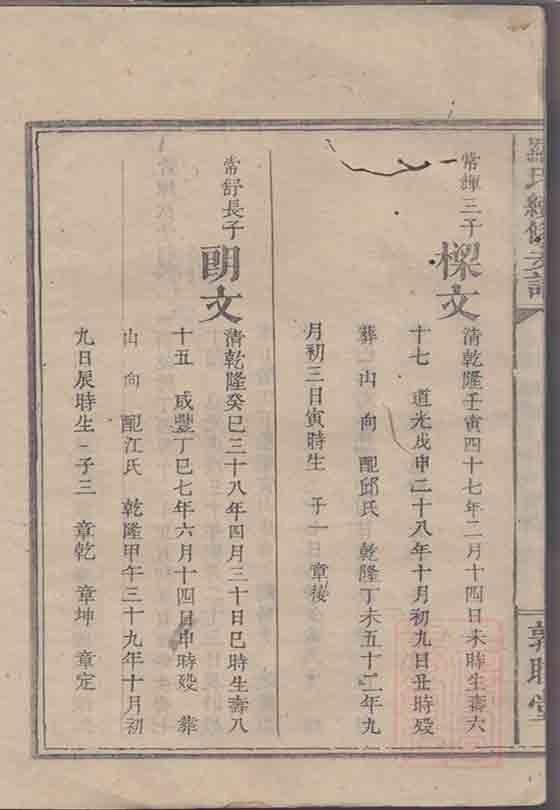 氏續修支譜
常輝三子
樑文
清乾隆壬寅四十七年二月十四日未時生壽六
十七 道光戊申二十八年十月初九日丑時歿
葬 山 向 配邱氏 乾隆丁未五十二年九
月初三日寅時生 子一 章接
常舒長子
朗文
清乾隆癸巳三十八年四月三十日巳時生壽八
十五 咸豐丁巳七年六月十四日申時歿 葬
山 向 配江氏 乾隆甲午三十九年十月初
九日辰時生 子三 章乾 章坤 章定
敦睦堂